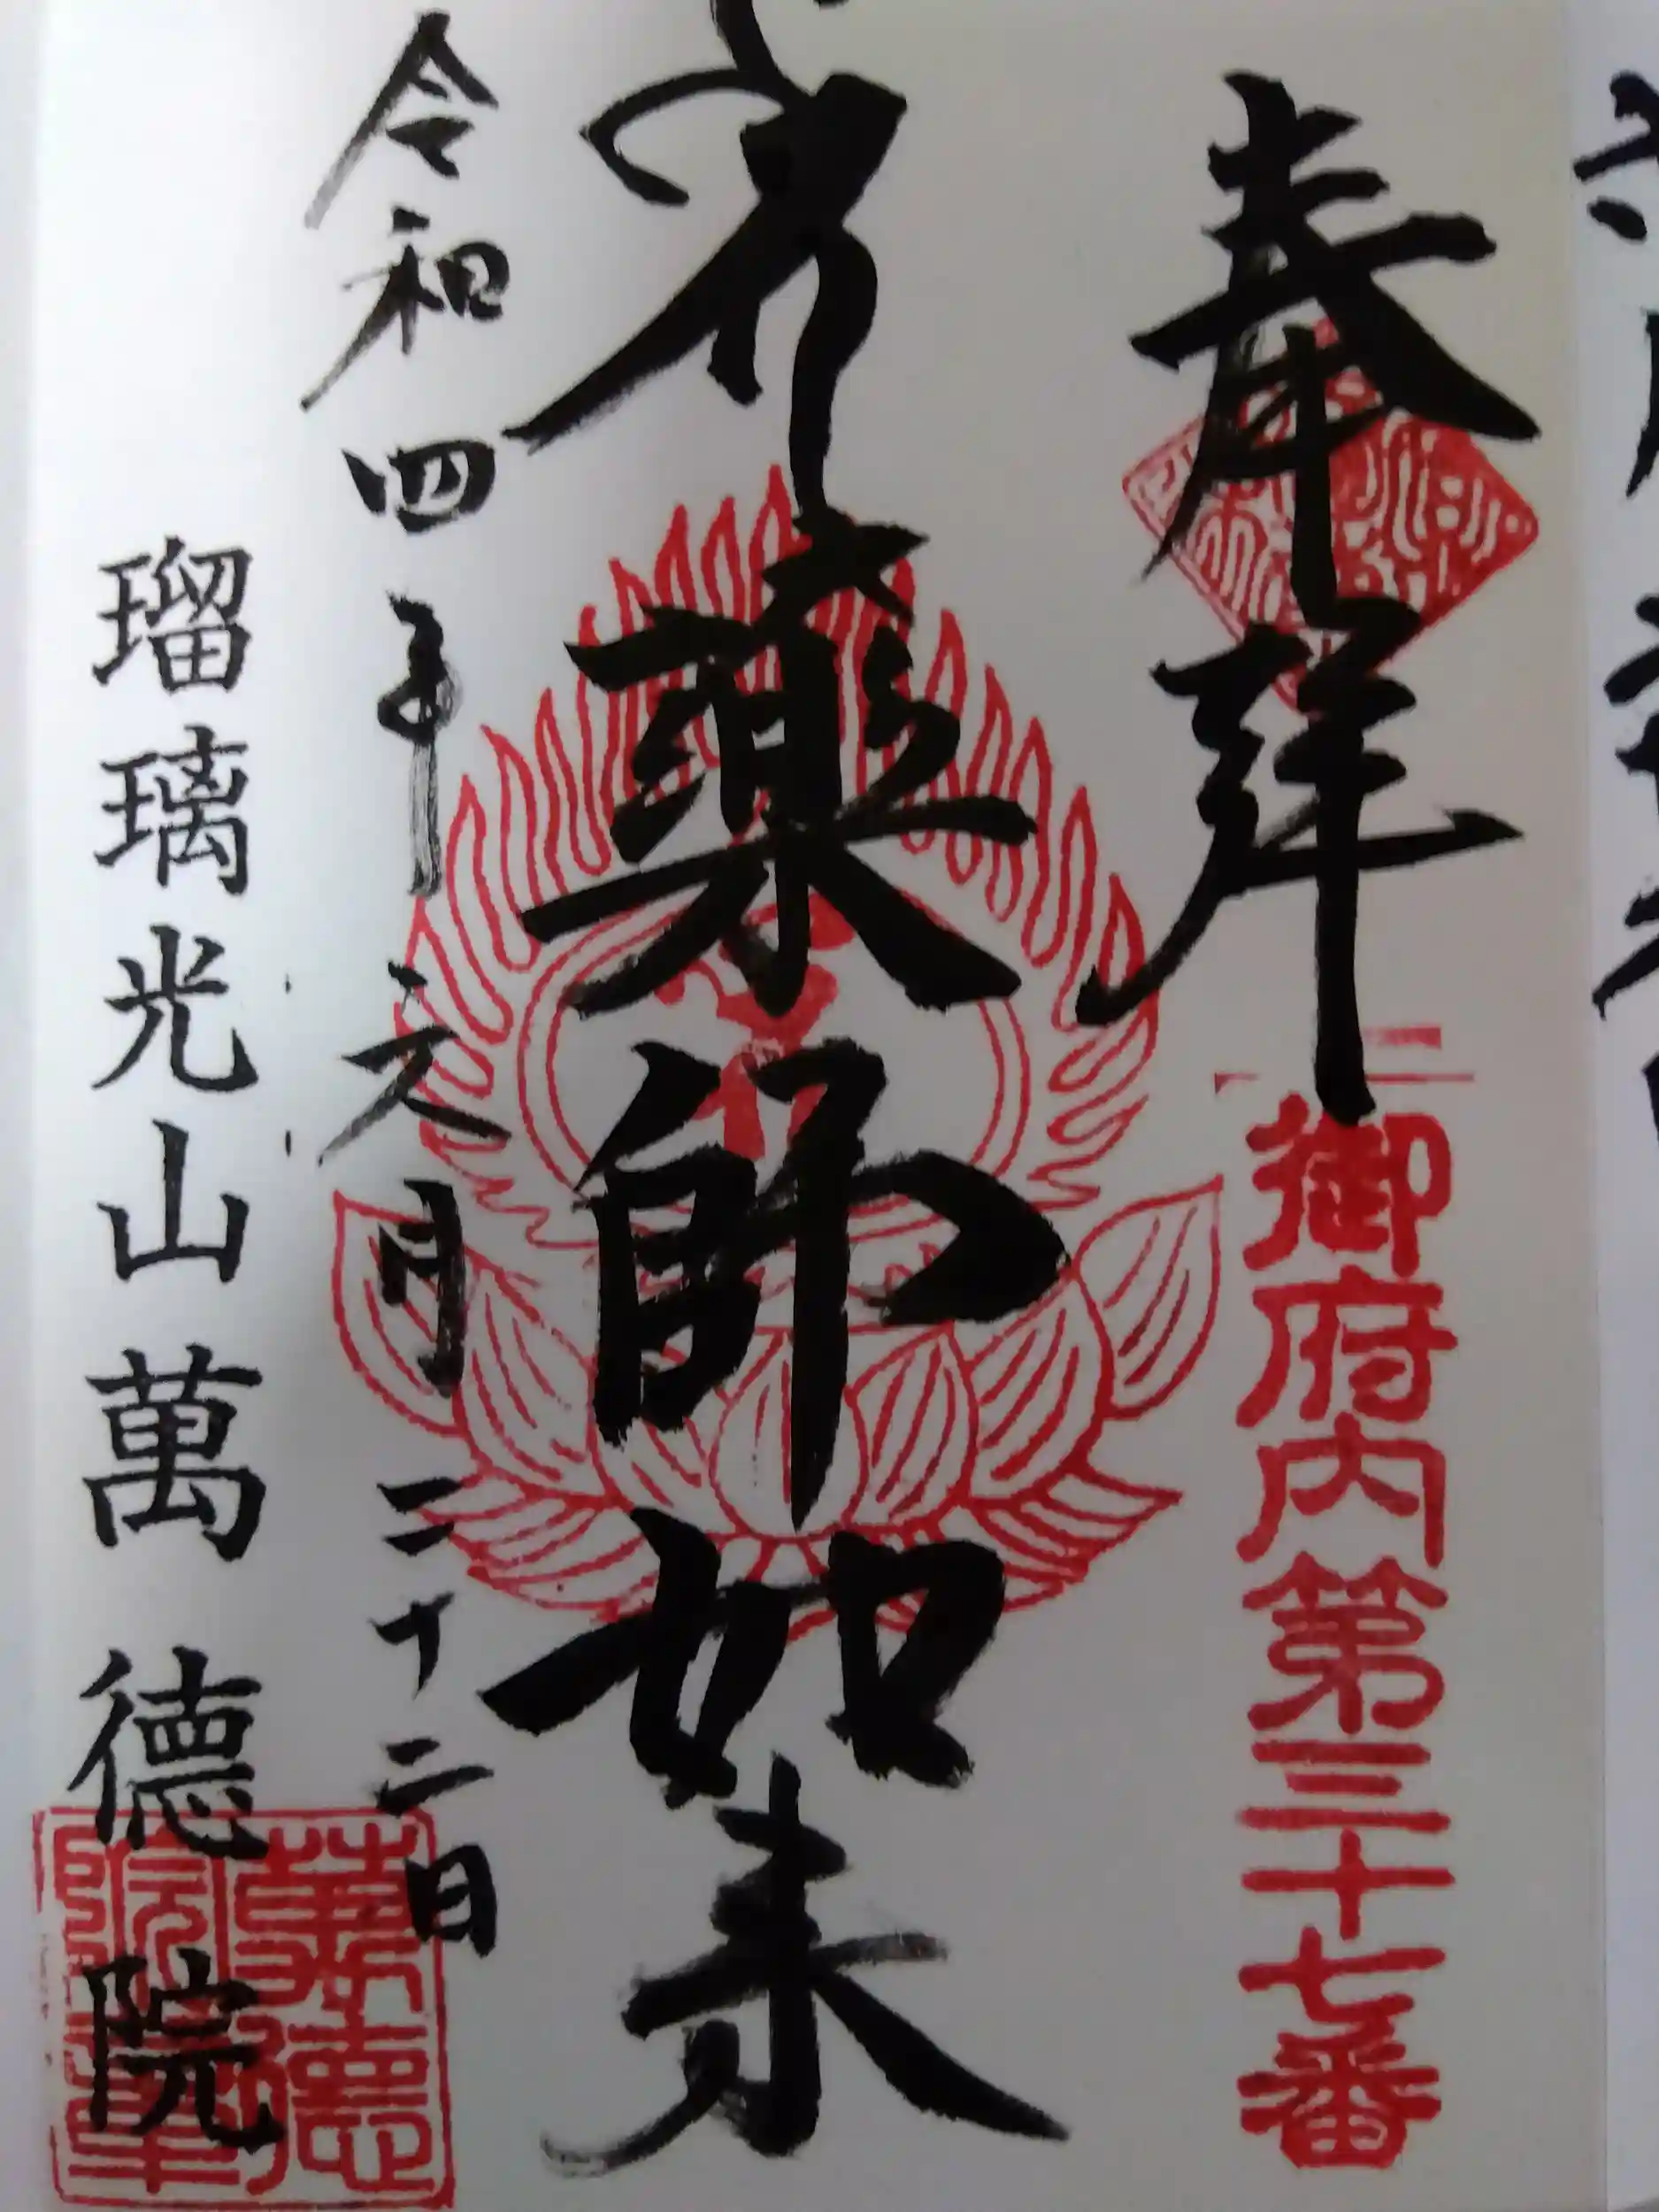 奉拝
御府内第三十七番
薬師如来
令和四年元月二十二日
瑠璃光山萬德院
萬德院章